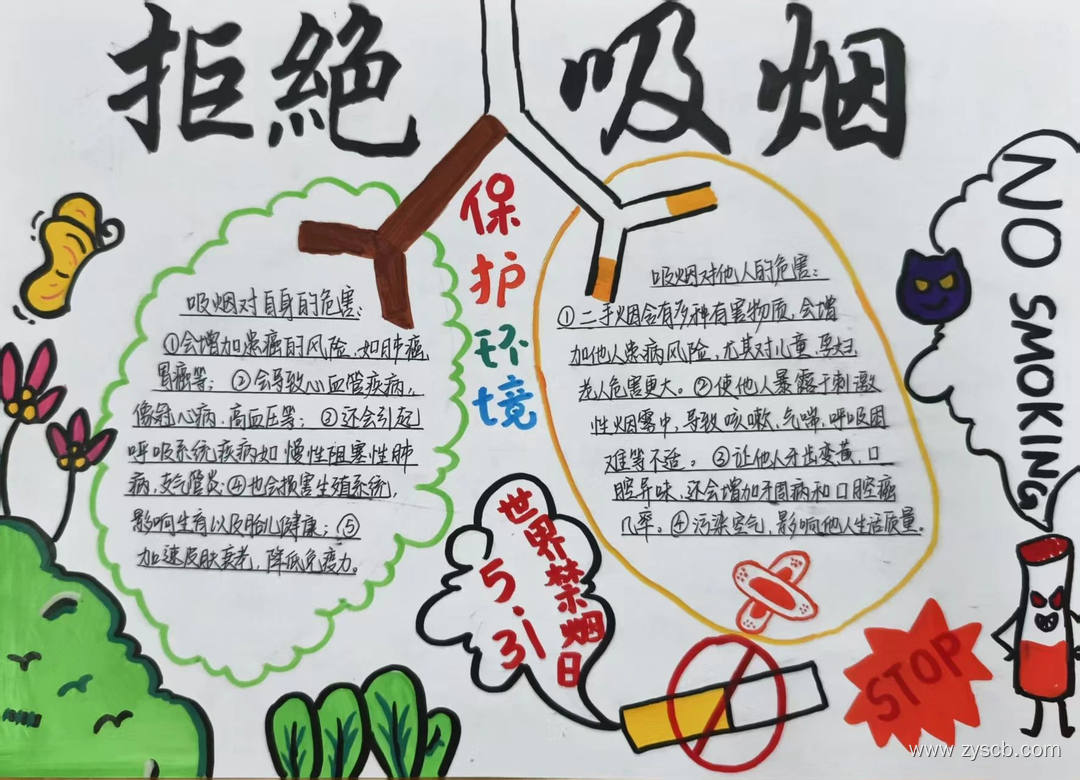 拒絕 吸烟
保护环境
吸烟对自身的危害:
①会增加患癌的风险,如肺癌
胃癌等; ②会导致心血管疾病,
像冠心病、高血压等; ②还会引起
呼吸系统疾病如 慢性阻塞性肺
病,支气管炎;④也会损害生殖系统,
影响生育以及胎儿健康; ⑤
加速皮肤衰老, 降低免疫力。
吸烟对他人的危害:
①二手烟含有多种有害物质,会增
加他人患病风险, 尤其对儿童,孕妇
老人危害更大。②使他人暴露于刺激
性烟雾中,导致咳嗽,气喘,呼吸困
难等不适。③让他人牙齿变黄,口
腔异味,还会增加牙周病和口腔癌
几率。④污染空气,影响他人生活质量。
世界禁烟日
5.31
NO SMOKING
STOP
www.zyscb.com